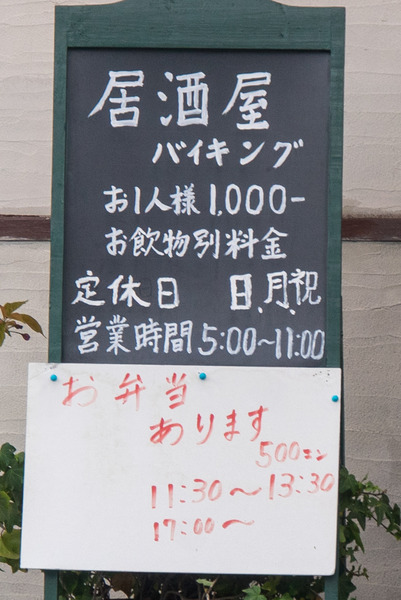 居酒屋
バイキング
お1人様1,000-
お飲物別料金
定休日 日、月、祝
営業時間 5:00~11:00
お弁当
あります
500エン
11:30~13:30
17:00~